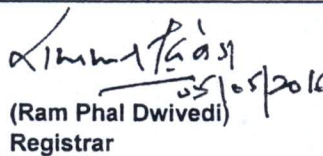 05/05/2016
(Ram Phal Dwivedi)
Registrar